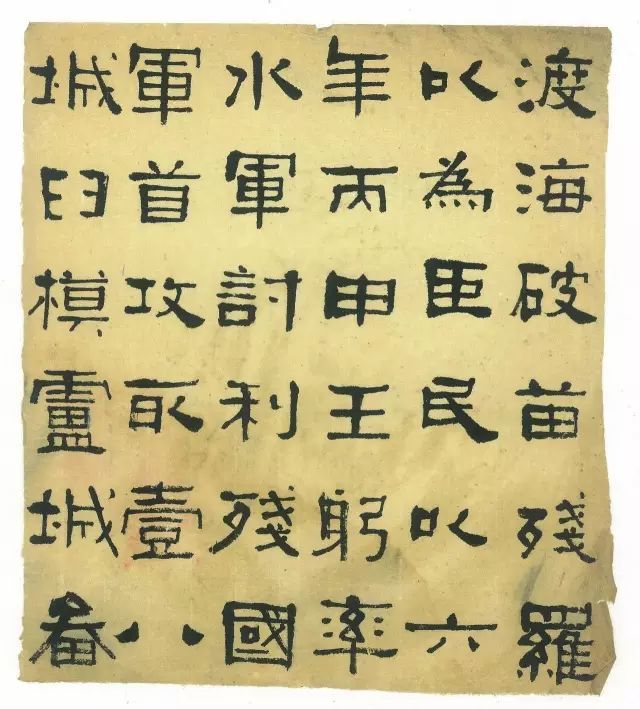 渡海破苗殘羅
以為臣民以六
年丙申王躬率
水軍討利殘國
軍首攻取壹八
城臼模盧城番